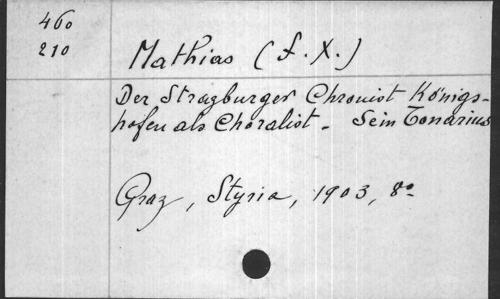 460
210
Mathias (F. X.)
Der Straßburger Chronist Königs-
hofen als Choralist. Sein Tonarius
Graz, Styria, 1903, 8º